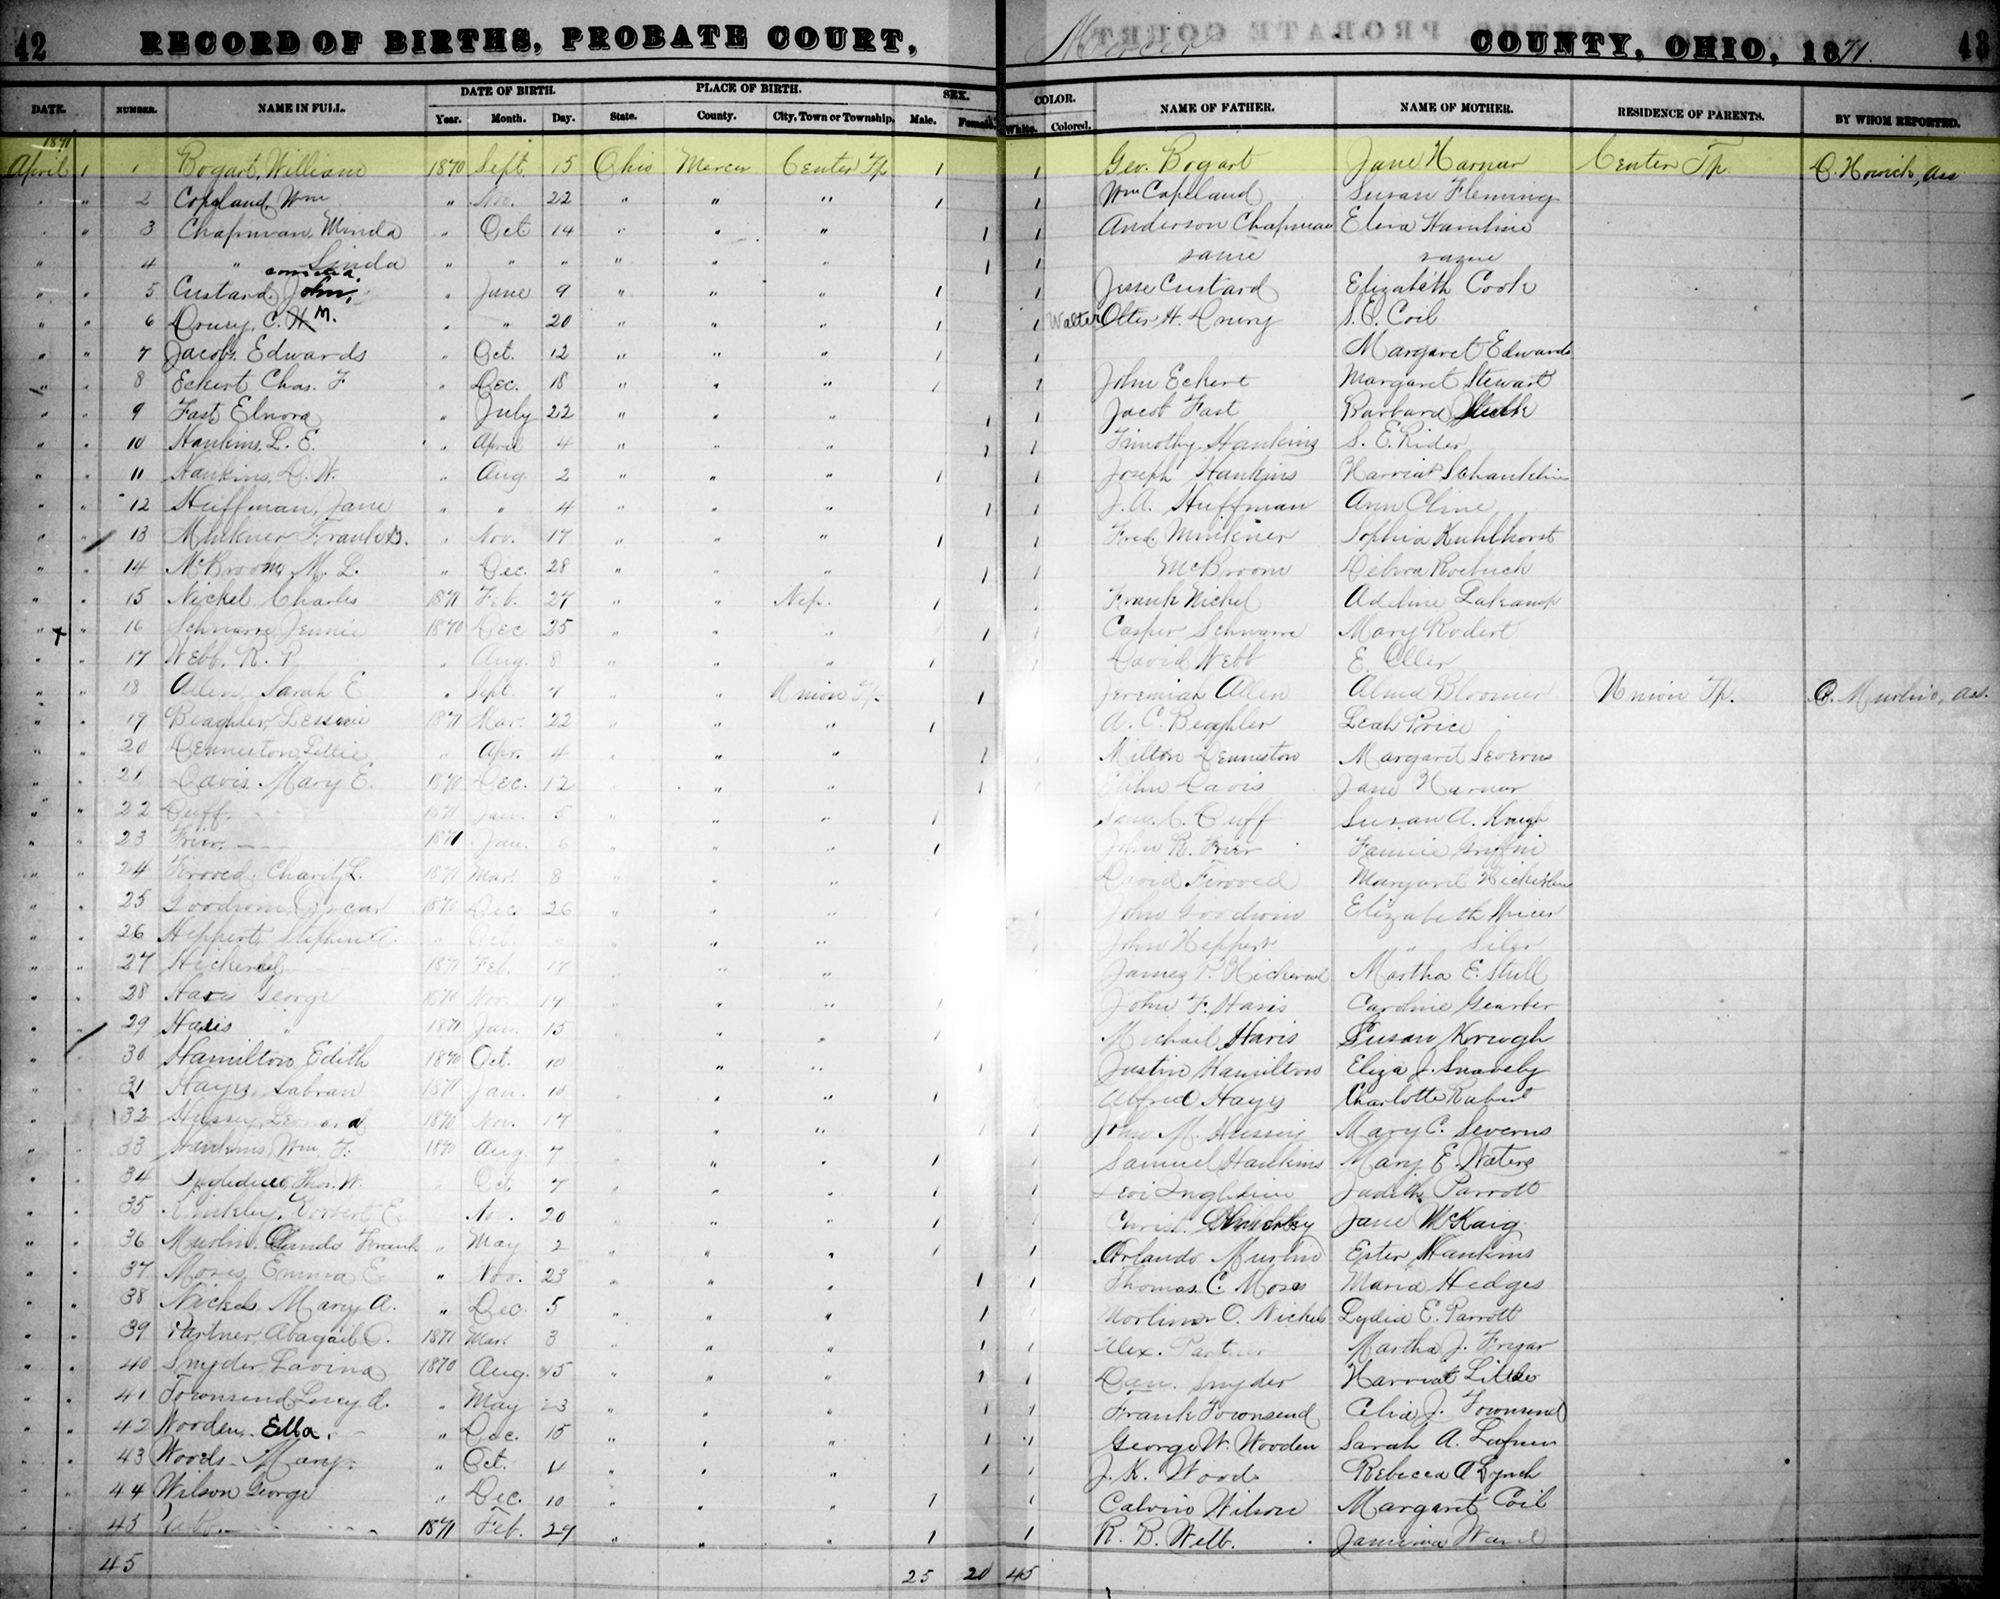 42 RECORD OF BIRTHS, PROBATE COURT, Mercer COUNTY, OHIO, 1871. 43
DATE. NUMBER. NAME IN FULL. DATE OF BIRTH. PLACE OF BIRTH. SEX. COLOR. NAME OF FATHER. NAME OF MOTHER. RESIDENCE OF PARENTS. BY WHOM REPORTED.
Year. Month. Day. State. County. City, Town or Township. Male. Female. White. Colored.
1871
April 1 1 Bogart, William 1870 Sept. 15 Ohio Mercer Center Tp 1 1 Geo. Bogart Jane Harnar Center Tp.
" " 2 Copeland, Wm " Nov. 22 " " " 1 1 Wm Copeland Susan Fleming
" " 3 Chapman, Minda " Oct 14 " " " 1 1 Anderson Chapman Hamline
" " 4 " Linda " " " " " " 1 1 same same
" " 5 Custard, John, " June 9 " " " 1 1 Jesse Custard Elizabeth Cook
" " 6 Drury, C. H M. " " 20 " " " 1 1 Walter H. Drury S. E. Coil
" " 7 Jacobs Edwards " Oct. 12 " " " 1 1 Margaret Edwards
" " 8 Eckert Chas. F " Dec. 18 " " " 1 1 John Eckert Margaret Stewart
" " 9 Fast, Elnora " July 22 " " " 1 1 Jacob Fast Barbara
" " 10 Hankins, L. E. " April 4 " " " 1 1 Timothy Hankins S. E. Rider
" " 11 Hankins, D. W. " Aug. 2 " " " 1 1 Joseph Hankins Harriet
" " 12 Huffman, Jane " " 4 " " " 1 1 J. A. Huffman Ann Cline
" " 13 Minkner Frank B. " Nov. 17 " " " 1 1 Fred. Minkner Sophia Kuhlhorst
" " 14 McBroom, M. L. " Dec. 28 " " " 1 1 McBroom Debora Roebuck
" " 15 Nickel, Charles 1871 Feb. 27 " " Nep. 1 1 Frank Nickel Adeline
" " 16 Schwarre, Jennie 1870 Dec 25 " " " 1 1 Casper Schwarre Mary Rodert
" " 17 Webb, R. P. " Aug. 8 " " " 1 1 David Webb E. Eller
" " 18 Allen, Sarah E. " Sept. 7 " " Union Tp. 1 1 Jeremiah Allen Bloomer Union Tp. O. Murlin, as.
" " 19 Beaghler, 1871 Mar. 22 " " " 1 A. C. Beaghler Leah Price
" " 20 Denneston, Lettie " Apr. 4 " " " 1 Milton Denneston Margaret Severns
" " 21 Davis, Mary E. 1870 Dec. 12 " " 1 1 Elihu Davis Jane Harnar
" " 22 Cuff. 1871 Jan. 5 " " " 1 Sam. C. Cuff Susan A.
" " 23 Frier 1871 Jan. 6 " " " 1 John R. Frier Fannie Griffin
" " 24 Firoved, Charity L. 1871 Mar. 8 " " David Firoved Margaret
" " 25 Goodwin, Oscar 1870 Dec. 26 " " " 1 1 John Goodwin Elizabeth Spicer
" " 26 Heppert, Stephen A. " " " 1 John Heppert " Siler
" " 27 1871 Feb. 17 " " " James P. Martha E. Stull
" " 28 Haris George 1870 Nov. 14 " " " 1 John F. Haris Caroline
" " 29 Haris " 1871 Jan. 15 " " " 1 Michail Haris Susan
" " 30 Hamilton, Edith 1870 Oct. 10 " " " 1 1 Justin Hamilton Eliza J. Snavely
" " 31 Hayes, 1871 Jan. 10 " " " 1 1 Alfred Hayes Charlotte
" " 32 Hussey, Leonard 1870 Nov. 14 " " " 1 1 John M. Hussey Mary C. Severns
" " 33 Hankins, Wm. F. 1870 Aug. 7 " " " 1 1 Samuel Hankins Mary E. Waters
" " 34 Thos. W. Oct. 7 " " " 1 1 Levi Judith Parrott
" " 35 E. Nov. 20 " " " 1 1 Christ. Jane McKaig
" " 36 Murlin, Frank " May 2 " " " 1 1 Orlando Murlin Ester Hankins
" " 37 Moses, Emma E. " Nov. 23 " " " 1 1 Thomas C. Moses Maria Hedges
" " 38 Nickels, Mary A. " Dec. 5 " " " 1 1 O. Nickels Lydia E. Parrott
" " 39 Partner, Abagail O. 1871 Mar. 3 " " " 1 1 Alex. Partner Martha J. Fryar
" " 40 Snyder, Lavina 1870 Aug. " " " 1 1 Dan. Snyder Harriet Little
" " 41 Townsend, Lucy A. " May 23 " " " 1 1 Frank Townsend Celia J. Townsend
" " 42 Wooden, Ella. " Dec. 15 " " " 1 1 George W. Wooden Sarah A.
" " 43 Woods, Mary. " Oct. " " " 1 1 J. K. Woods Rebecca A Lynch
" " 44 Wilson, George " Dec. 10 " " " 1 1 Calvin Wilson Margaret Coil
" " 45 1871 Feb. " " " 1 1 R. B. Webb. Ward
45 25 20 45